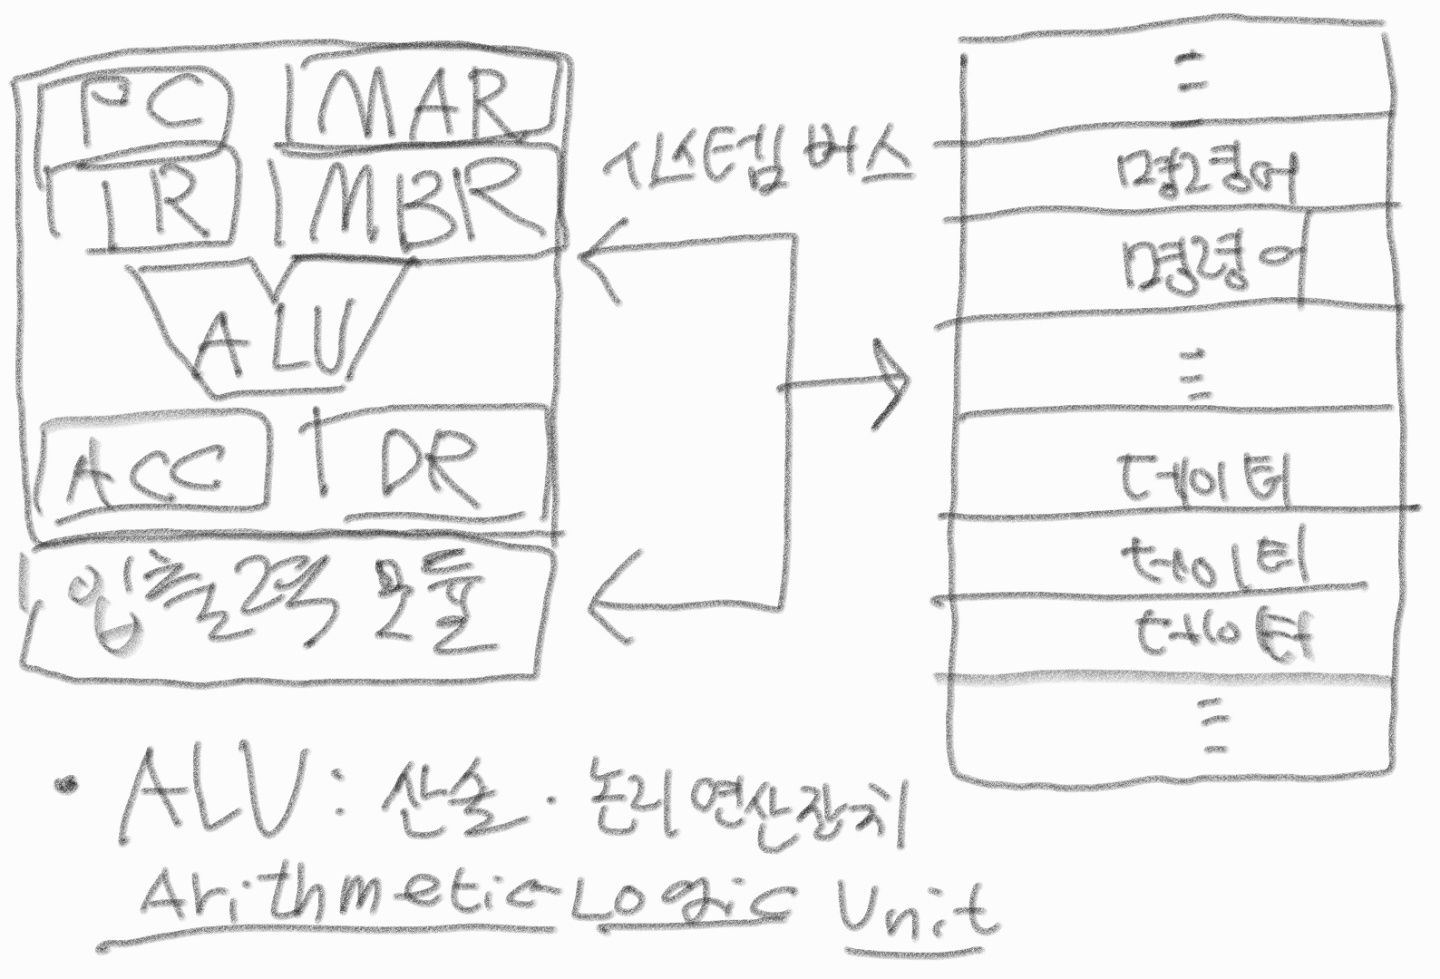 PC MAR
IR MBR
ALU
ACC DR
입출력 모듈
시스템 버스
명령어
명령어
데이터
데이터
데이터
• ALU : 산술 · 논리 연산장치
Arithmetic Logic Unit